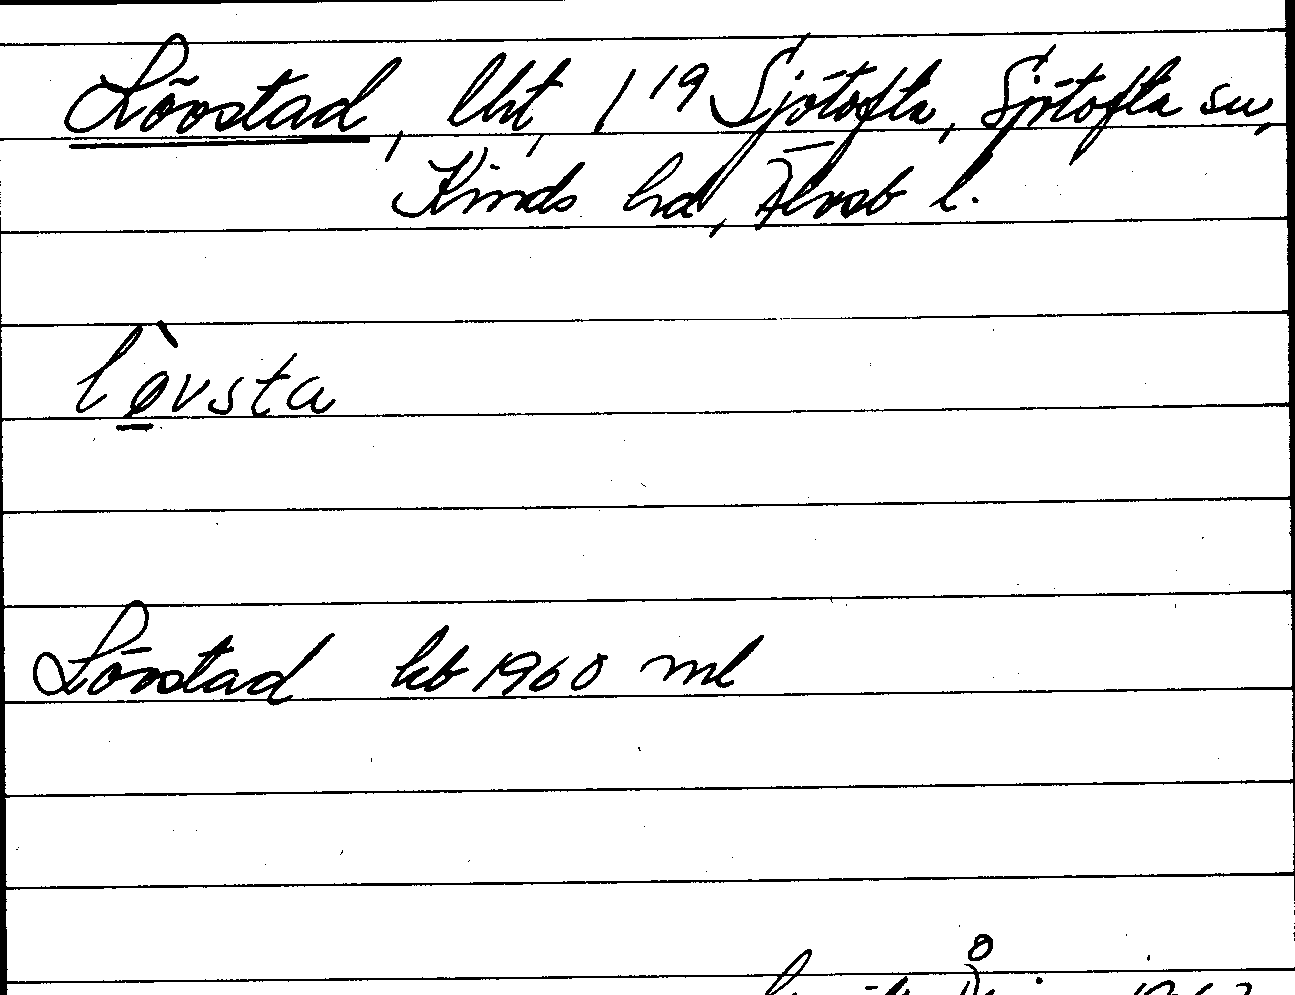 Lövstad, lht, 1¹⁹ Sjötofta, Sjötofta sn,
Kinds hd, Älvsb l.
lø̀vsta
Lövstad kb 1960 ml